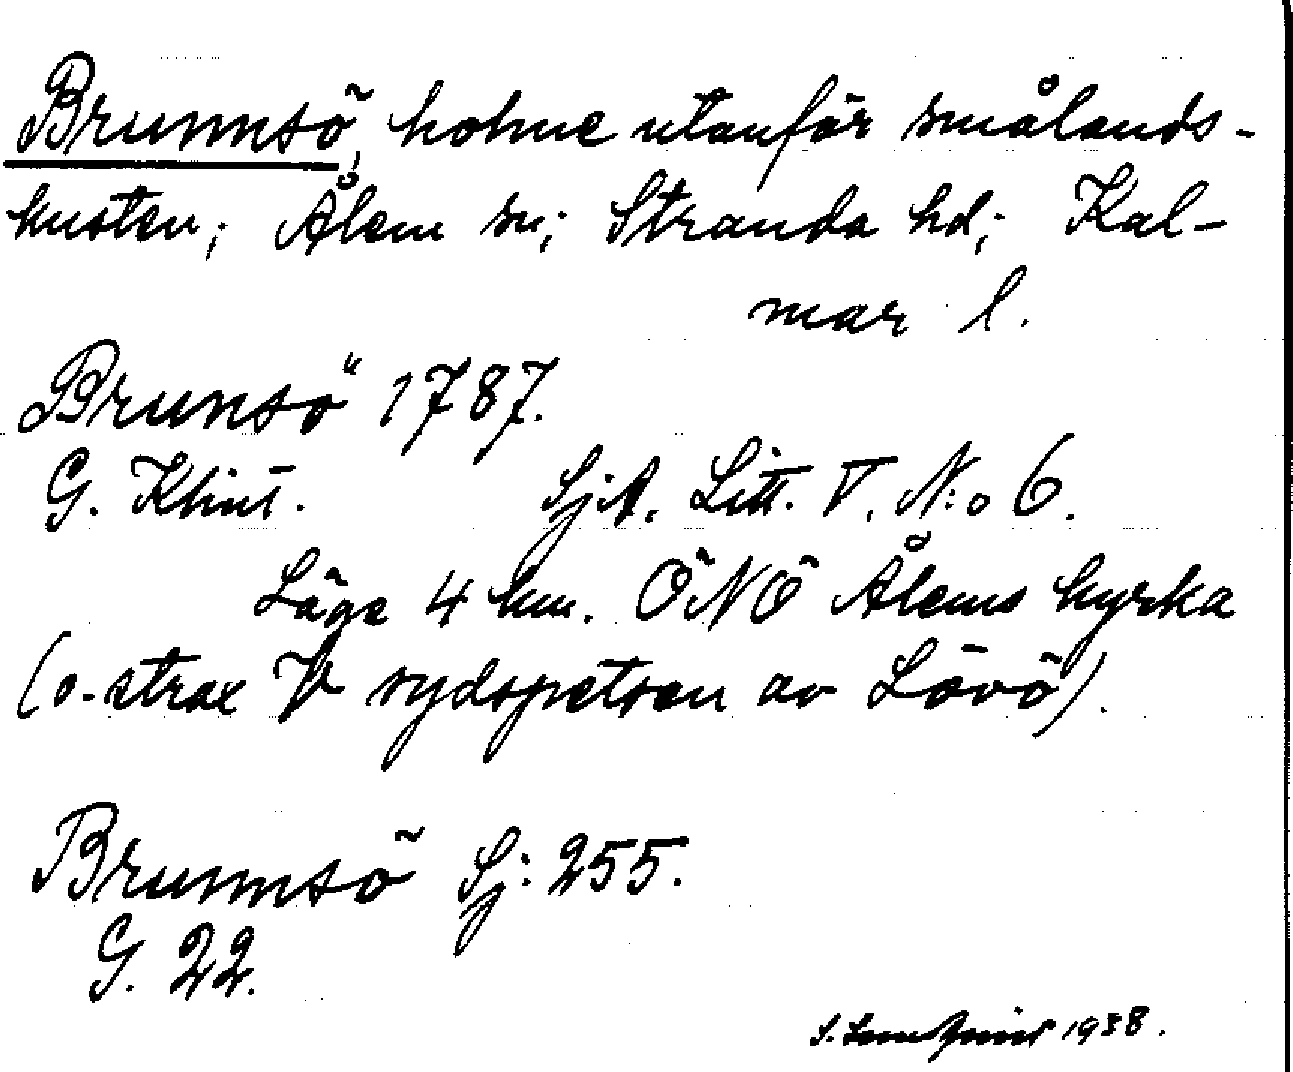 Brunnsö, holme utanför smålands-
kusten; Ålem sn; Stranda hd; Kal-
mar l.
Brunsö 1787.
G. Klint. SjA. Litt. V. N:o 6.
Läge 4 km. ÖNÖ Ålems kyrka
(o. strax V sydspetsen av Lövö).
Brunnsö Sj: 255.
G. 22.
S. 1938.